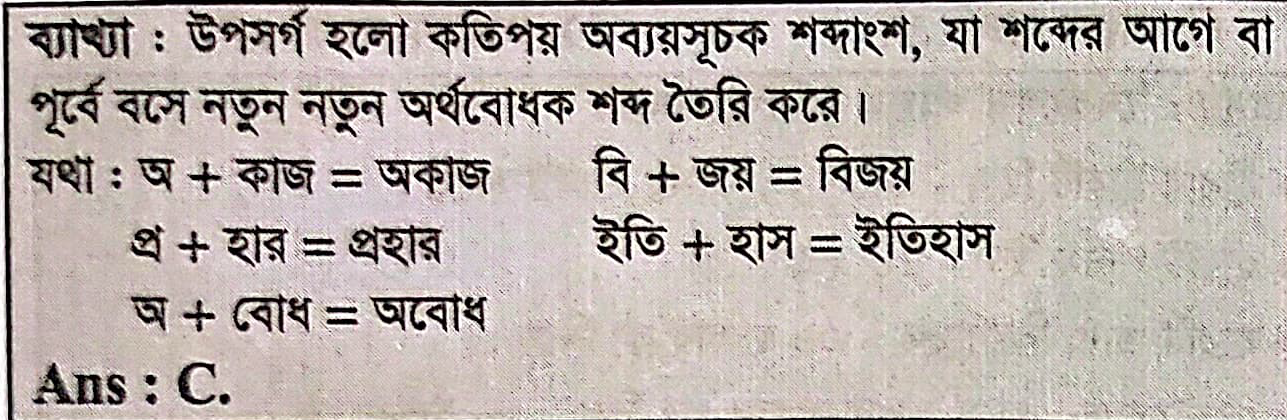 ব্যাখ্যা : উপসর্গ হলো কতিপয় অব্যয়সূচক শব্দাংশ, যা শব্দের আগে বা
পূর্বে বসে নতুন নতুন অর্থবোধক শব্দ তৈরি করে।
যথা : অ + কাজ = অকাজ বি + জয় = বিজয়
প্র + হার = প্রহার ইতি + হাস = ইতিহাস
অ + বোধ = অবোধ
Ans : C.